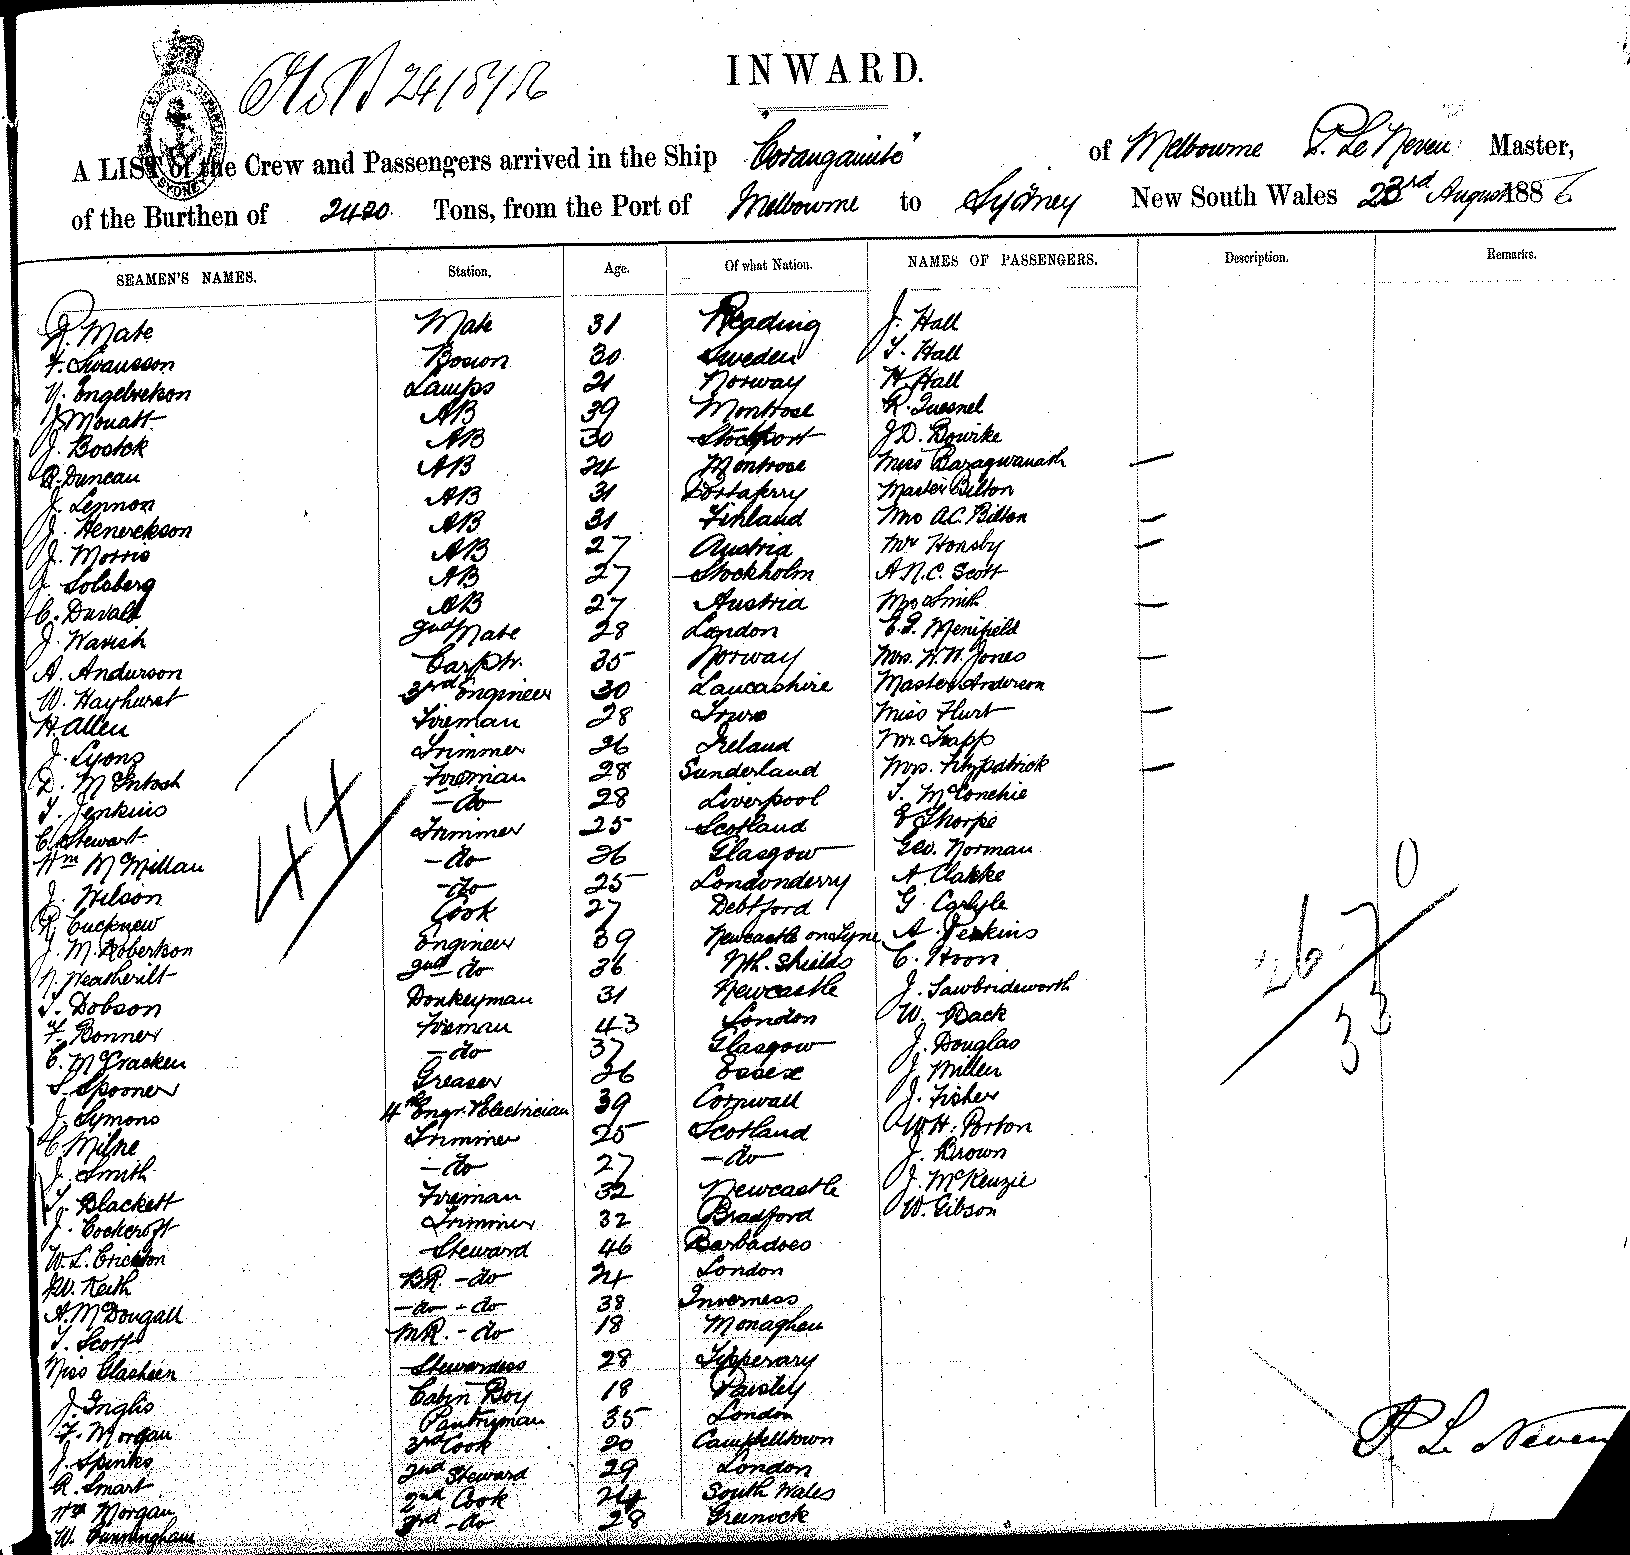 24/8/86
INWARD.
A LIST of the Crew and Passengers arrived in the Ship "Corangamite" of Melbourne P. Le Neveu Master,
of the Burthen of 2420 Tons, from the Port of Melbourne to Sydney New South Wales 23rd August 1886
SYDNEY
SEAMEN'S NAMES. Station. Age. Of what Nation. NAMES OF PASSENGERS. Description. Remarks.
R. Mate Mate 31 Reading J. Hall
F. Swansson Bosun 30 Sweden T. Hall
N. Engelrekson Lamps 21 Norway H. Hall
J. Mouatt AB 39 Montrose R. Quesnel
J. Bostok AB 30 Stockport J D. Bourke
R. Duncan AB 24 Montrose Miss Baragwanath —
J. Lennon AB 31 Portaferry Master Bilton
J. Henrekson AB 31 Finland Mrs A.C. Bilton —
J. Morris AB 27 Austria Mrs Honsby —
J. Solsberg AB 27 Stockholm A N. C. Scott
C. Duvald AB 27 Austria Mrs Smith —
J. Wavish 2nd Mate 28 London E. G. Menifield
A. Anderson Carptr. 35 Norway Mrs. W. W. Jones —
W. Hayhurst 3rd Engineer 30 Lancashire Master Anderson
H. Allen Fireman 28 Truro Miss Hurt —
J. Lyons Trimmer 26 Ireland Mr. Trapp
D. McIntosh Fireman 28 Sunderland Mrs. Fitzpatrick —
T. Jenkins - do 28 Liverpool T. McConchie
C. Stewart Trimmer 25 Scotland E Thorpe
Wm McMillan - do 26 Glasgow Geo. Norman
J. Wilson - do 25 Londonderry A. Clarke
R. Cucknew Cook 27 Debtford G. Carlyle
J. M. Robertson Engineer 39 Newcastle on Tyne A. Jenkins
N. Weatherilt 2nd - do 36 Nth. Shields C. Hoon
T. Dobson Donkeyman 31 Newcastle J. Sawbridgeworth
F. Bonner Fireman 43 London W. Back
C. McCracken - do 37 Glasgow J. Douglas
S. Spooner Greaser 26 Essex J. Millen
J. Symons 4th Engr. & Electrician 39 Cornwall J. Fisher
C. Milne Trimmer 25 Scotland W H. Porton
J. Smith - do 27 - do J. Brown
T. Blackett Fireman 32 Newcastle J. McKenzie
J. Cockcroft Trimmer 32 Bradford W. Gibson
W. L. Crichton Steward 46 Barbadoes
W. Keith BR. - do 24 London
A. McDougall - do - do 38 Inverness
T. Scott MR. - do 18 Monaghan
Miss Glasheen Stewardess 28 Tipperary
J. Inglis Cabin Boy 18 Paisley
F. Morgan Pantryman 35 London
J. Spinks 3rd Cook 20 Campbelltown
R. Smart 2nd Steward 29 London
Wm Morgan 2nd Cook 24 South Wales
W. Cunningham 3rd - do 28 Greenock
44
26 7 0
33
P. Le Neveu